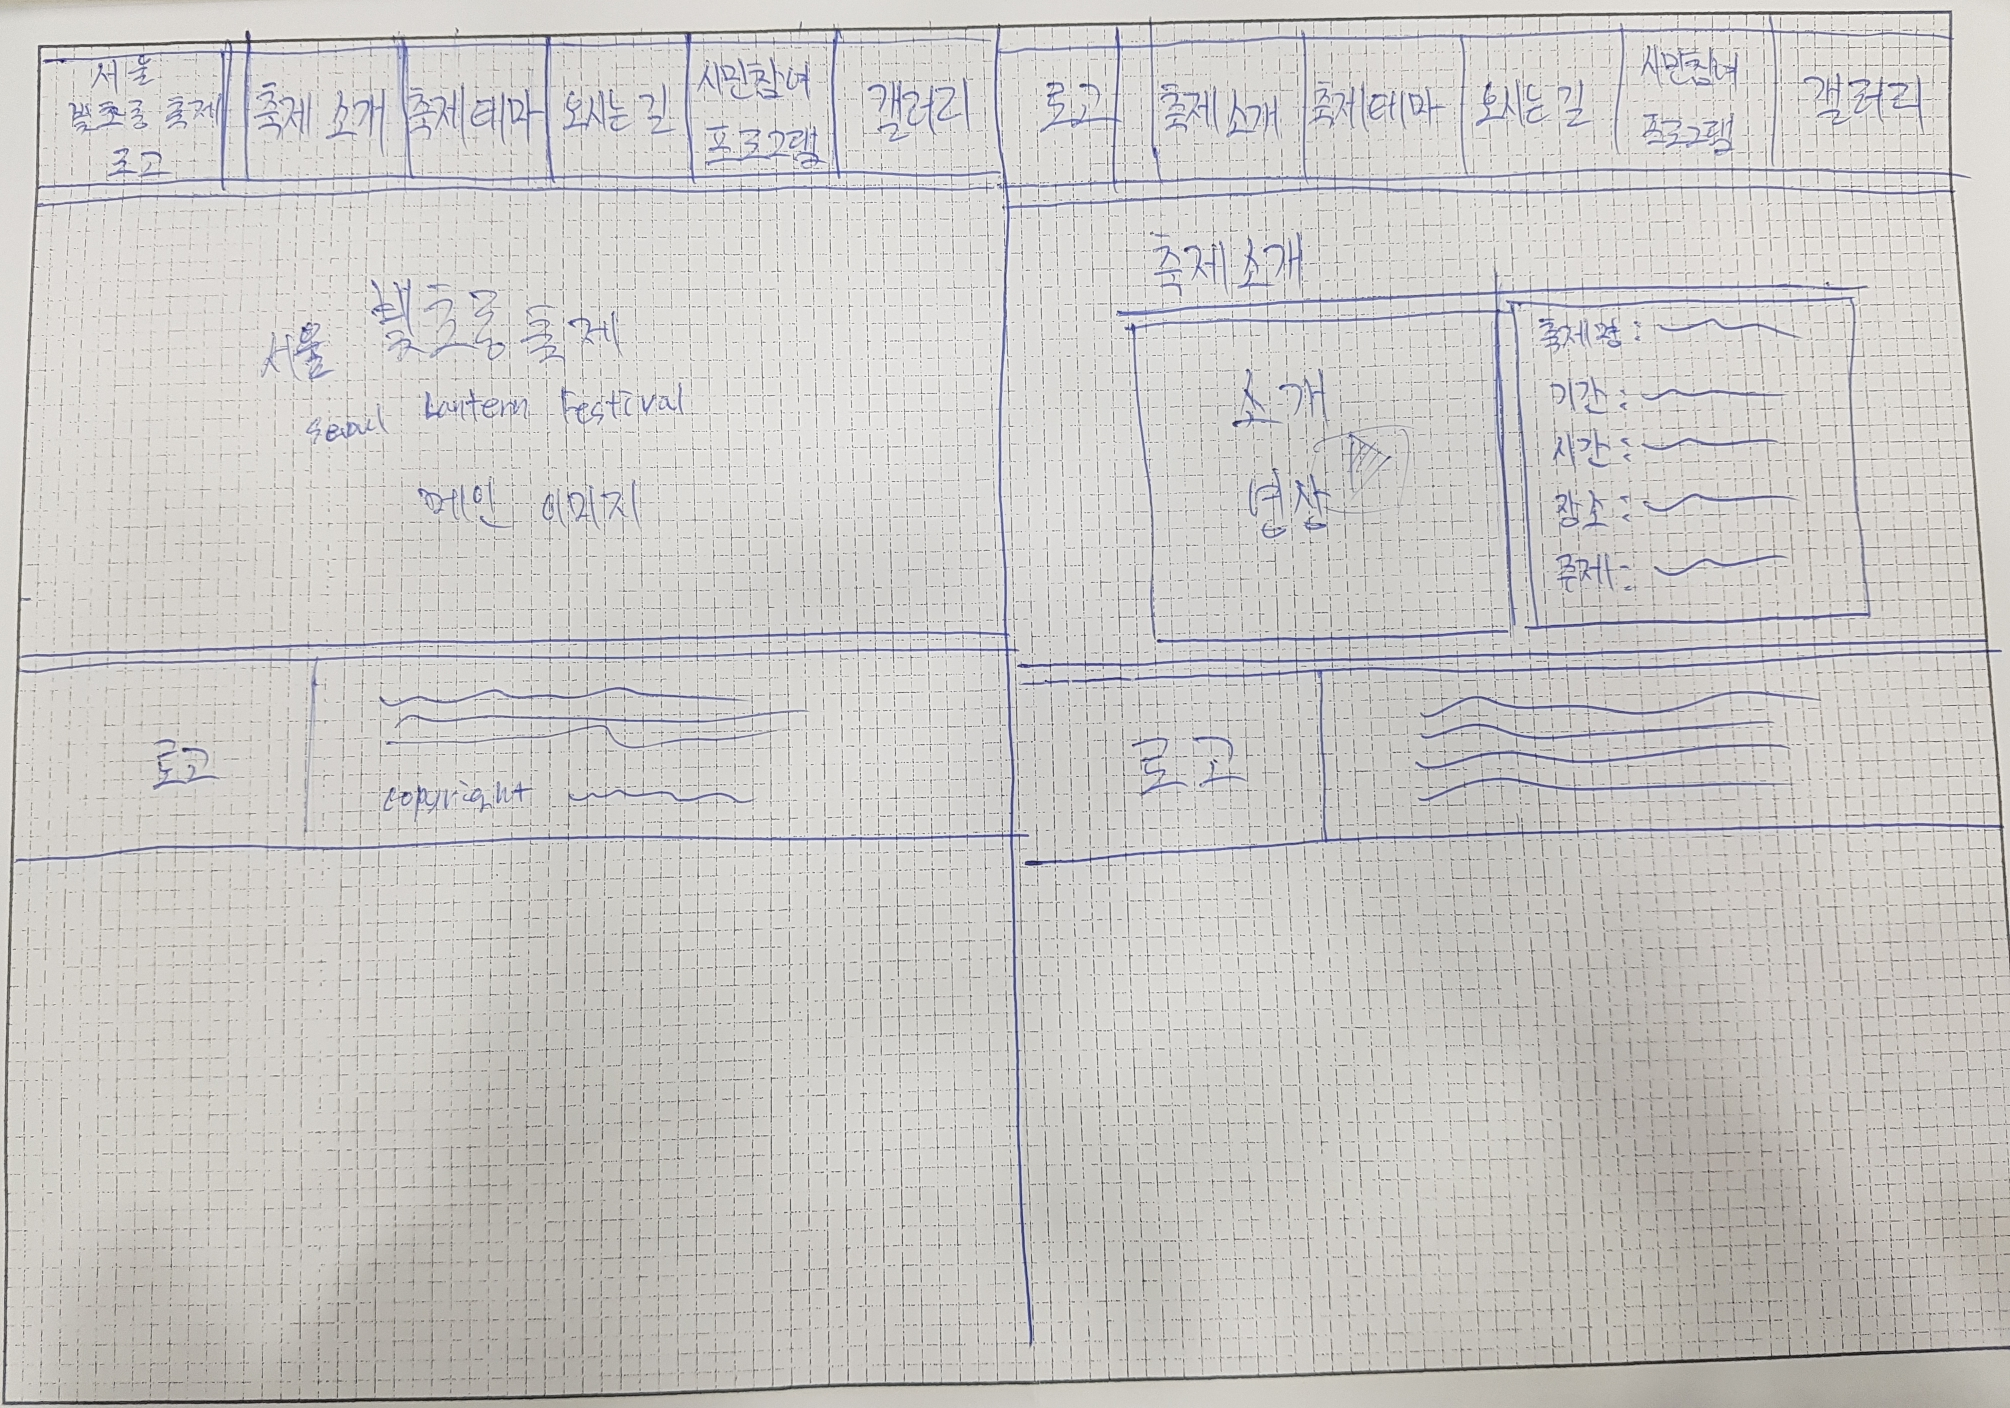 서울
빛초롱 축제
로고
축제 소개
축제 테마
오시는 길
시민참여
프로그램
갤러리
서울 빛초롱 축제
Seoul Lantern Festival
메인 이미지
로고
copyright
로고
축제 소개
축제 테마
오시는 길
시민참여
프로그램
갤러리
축제 소개
소개
영상
축제명:
기간:
시간:
장소:
주제:
로고